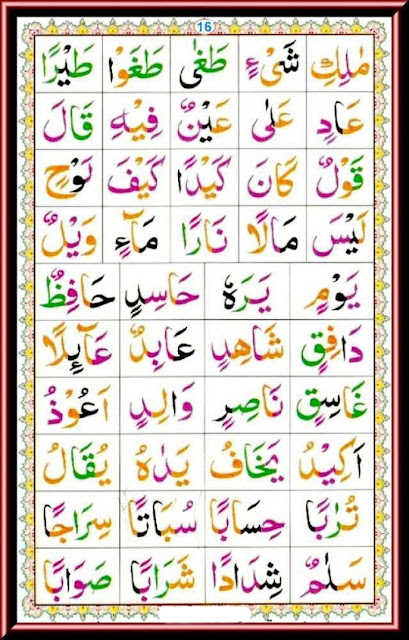 16
مٰلِكِ شَیْءٍ طَغٰی طَغَوْا طَيْرًا
عَادٍ عَلٰی عَيْنٌ فِيْهِ قَالَ
قَوْلٌ كَانَ كَيْدًا كَيْفَ لَوْحٍ
لَيْسَ مَالًا نَارًا مَآءٍ وَيْلٌ
يَوْمٍ يَرَهٗ حَاسِدٍ حَافِظٌ
دَافِقٍ شَاهِدٍ عَابِدٌ عَآئِلًا
غَاسِقٍ نَاصِرٍ وَالِدٍ اَعُوْذُ
اَكِيْدُ يَخَافُ يَدٰهُ يُقَالُ
تُرٰبًا حِسَابًا سُبَاتًا سِرَاجًا
سَلٰمٌ شِدَادًا شَرَابًا صَوَابًا